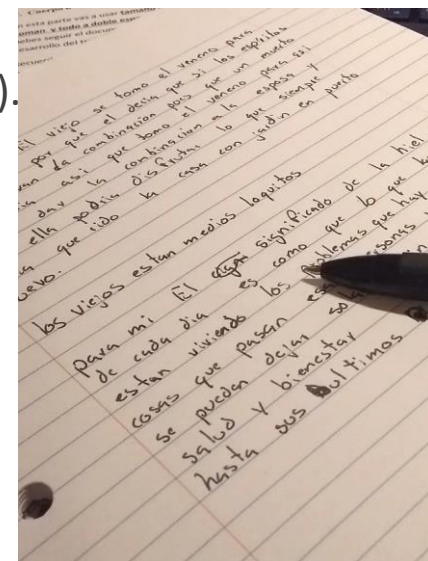 ).
Cuerpo
en esta parte vas a usar tamaño
oman y todo a doble esp
ebes seguir el docum
esarrollo del
Recuer
El viejo se tomo el veneno para
por que el decia que si los espiritos
van la combinasion pois que un muerto
asi que tomo el veneno para asi
dar la combinasion a la esposa y
ella podria disfrutar lo que siempre
que rido la casa con jardin en puerto
uevo.
los viejos estan medios loquitos
para mi El significado de la hiel
de cada dia es como que lo que
estan viviendo los problemas que hay
cosas que pasan
se pueden dejar
salud y bienestar
hasta sus ultimos